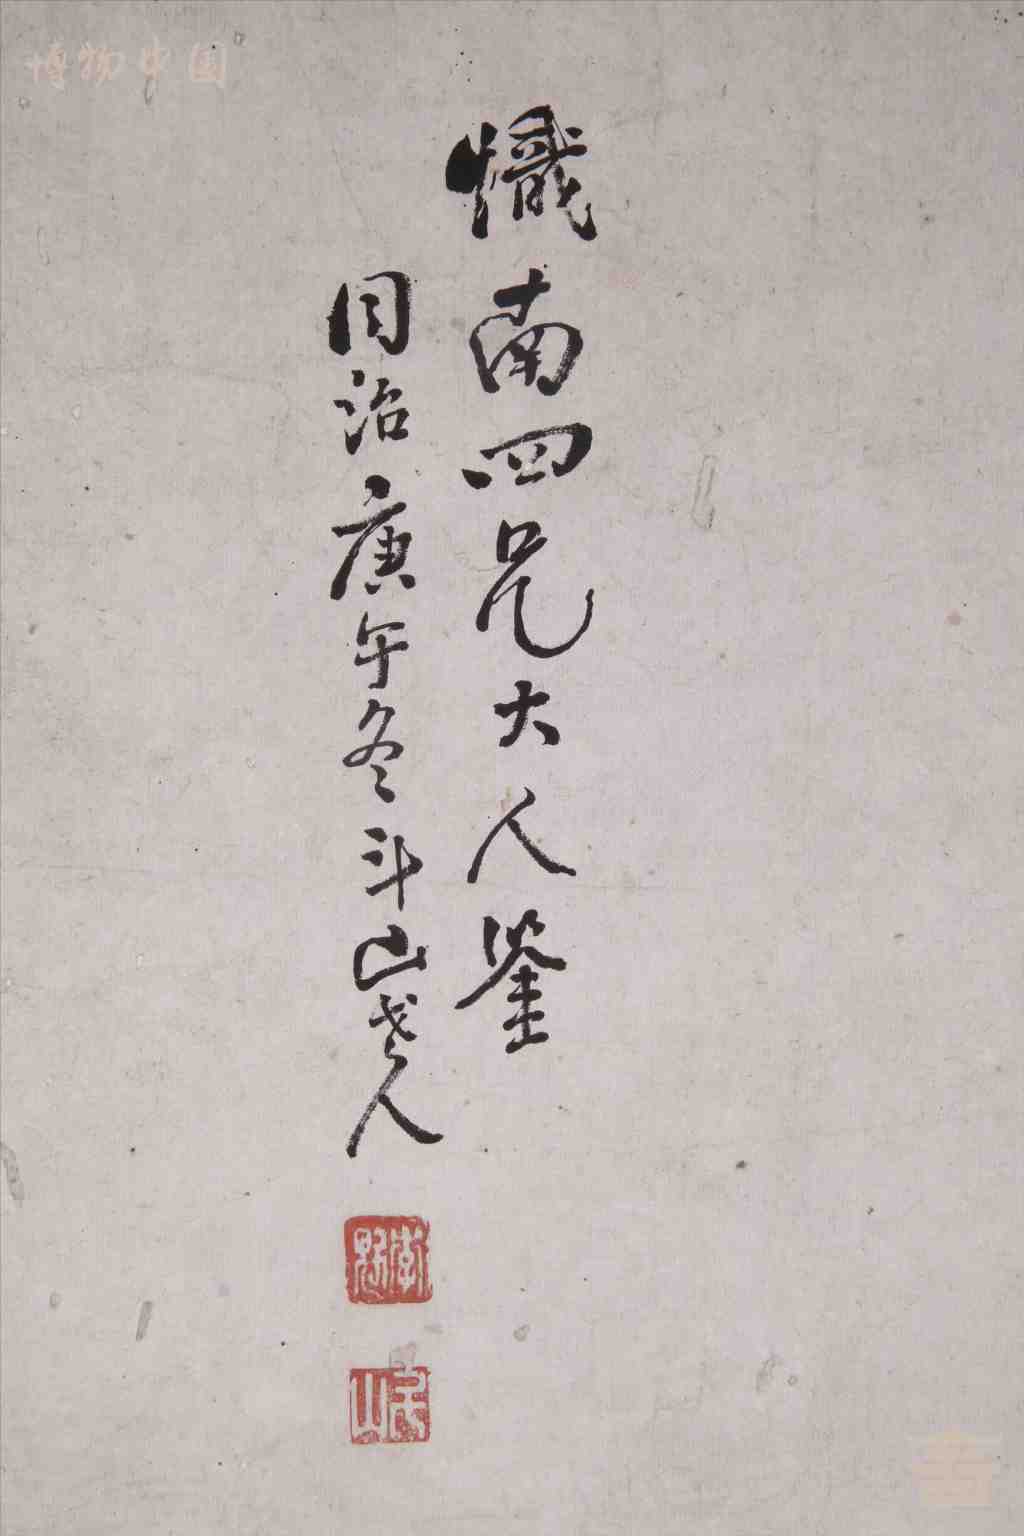 博物中国
熾南四兄大人鉴
同治庚午冬斗山老人